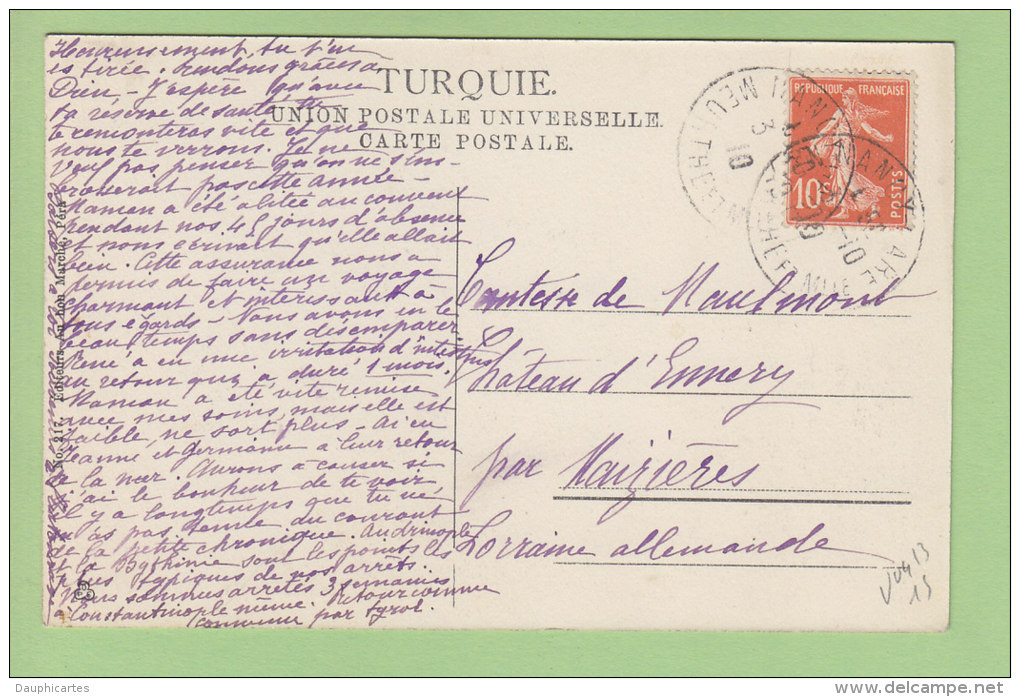 Heureusement tu t'en
es tirée. Rendons grâces à
Dieu - J'espère qu'avec
ta réserve de santé tu
te remonteras vite et que
nous te verrons. Je ne
veux pas penser qu'on ne s'em-
brasserait pas cette année -
Maman a été alitée au couvent
pendant nos 45 jours d'absence
et nous écrivait qu'elle allait
bien. Cette assurance nous a
permis de faire un voyage
charmant et intéressant à
tous égards - Nous avons eu le
beau temps sans désemparer
René a eu une irritation d'intestins
au retour qui a duré 1 mois.
Maman a été vite remise
avec mes soins, mais elle est
faible, ne sort plus - ai eu
Jeanne et Germaine à leur retour
de la mer. Aurons à causer si
j'ai le bonheur de te voir
il y a longtemps que tu ne
m'as pas tenue du courant
de la petite chronique. Andrinople
et la Bythinie sont les points les
plus typiques de nos arrêts.
Nous sommes arrêtés 3 semaines
à Constantinople même. Retour comme
par Tyrol.
TURQUIE.
UNION POSTALE UNIVERSELLE.
CARTE POSTALE.
No. 217. Editeurs Au bon Marché, Péra
RÉPUBLIQUE FRANÇAISE
10c
POSTES
Comtesse de Maulmont
Château d'Ennery
par Maizières
Lorraine allemande
Dauphicartes